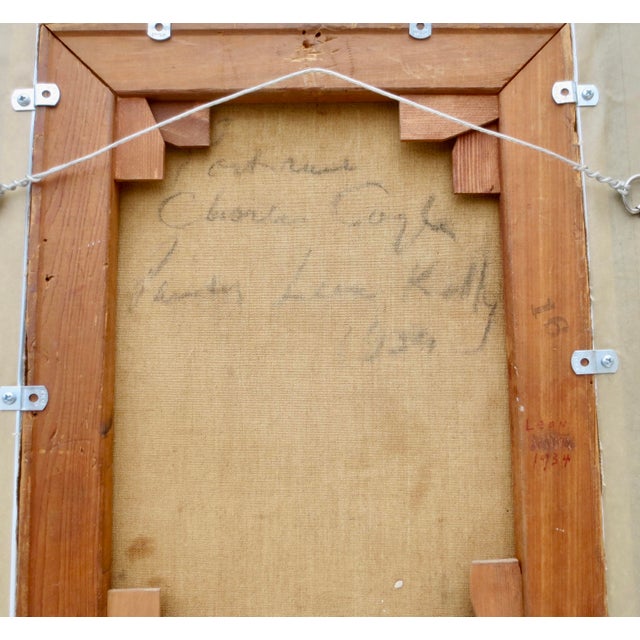 Portrait
Charles Coyle
Painter Leon Kelly
1934
16
LEON
1934